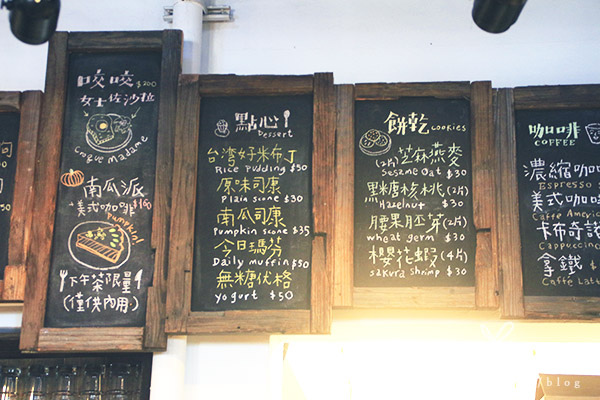 咬咬 $200
女士佐沙拉
Croque Madame
南瓜派
美式咖啡 $160
Pumpkin!
下午茶限量
(僅供內用)
點心
Dessert
台灣好米布丁
Rice Pudding $50
原味司康
Plain scone $30
南瓜司康
Pumpkin scone $35
今日瑪芬
Daily muffin $50
無糖優格
yogurt $50
餅乾 cookies
(2片) 芝麻燕麥
Sesame Oat $30
黑糖核桃 (2片)
Hazelnut $30
腰果胚芽 (2片)
wheat germ $30
櫻花蝦 (4片)
sakura shrimp $30
咖啡
COFFEE
濃縮咖
Espresso
美式咖
Caffè Americ
卡布奇諾
Cappuccino
拿鐵 $
Caffè Latt
blog